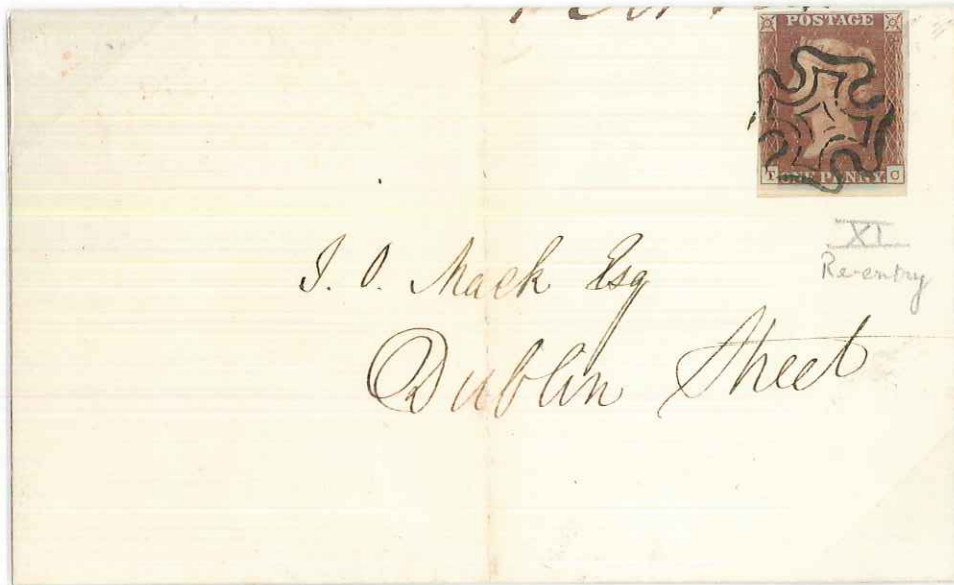 POSTAGE
T ONE PENNY. C
XI
Re-entry
J. O. Mack Esq
Dublin Street